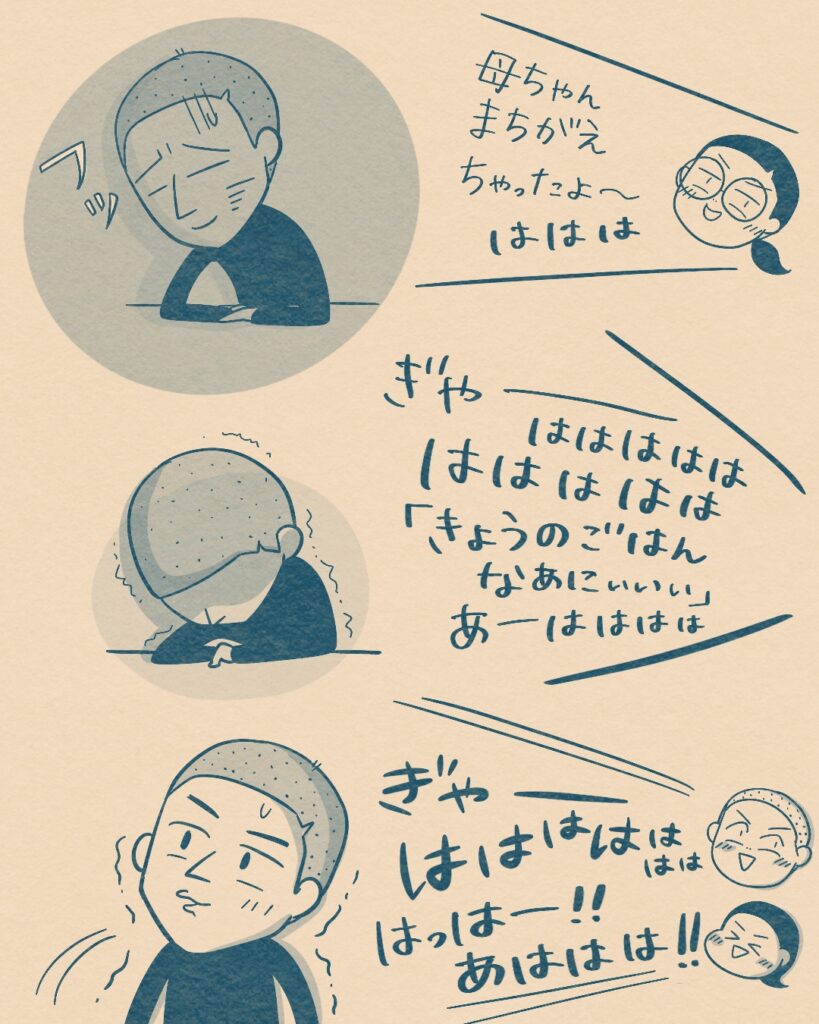 母ちゃん
まちがえ
ちゃったよ〜
ははは
フッ
ぎゃー
ははははは
ははははは
「きょうのごはん
なあにぃぃぃ」
あーはははは
ぎゃー
はははははは
はっはー!!
あははは!!